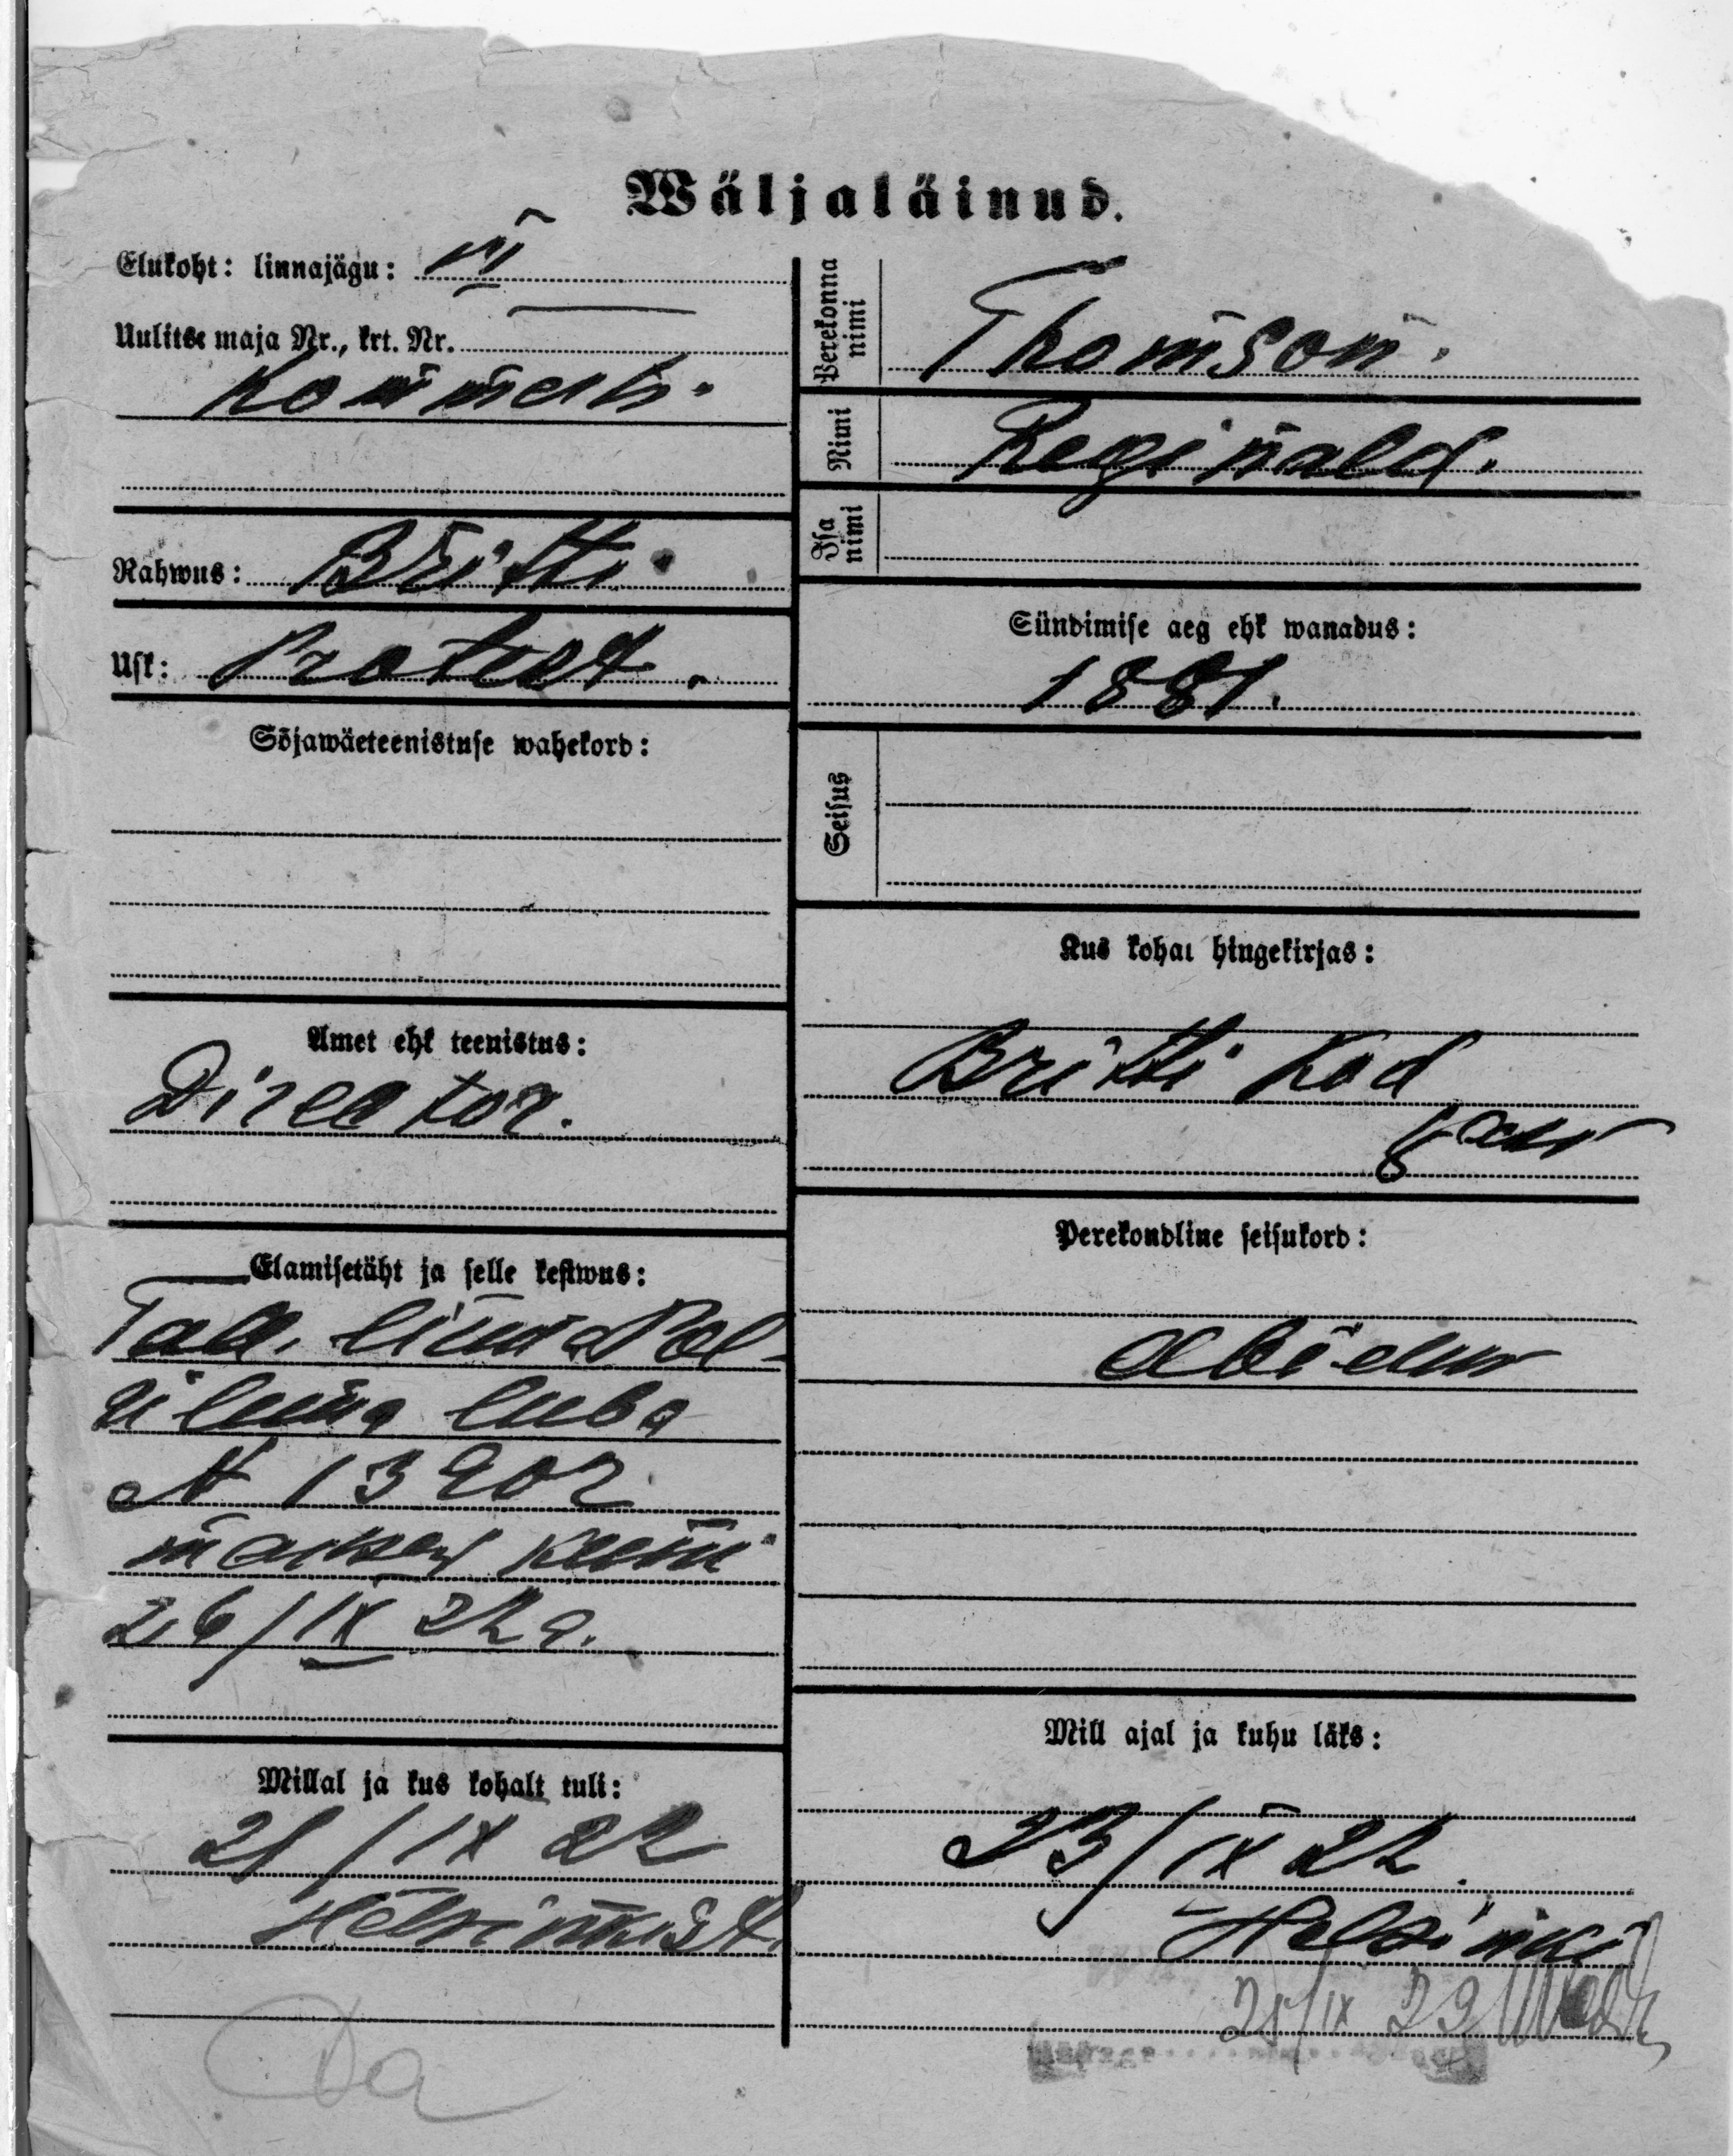 Wäljaläinud.
Elukoht: linnajägu: VI
Uulitse maja Nr., krt. Nr.
Rahwus: Britti
Usk: Protest.
Sõjawäeteenistuse wahekord:
Amet ehk teenistus:
Director.
Elamisetäht ja selle kestwus:
Tall. linna Pol
ülema luba
N 13902
maksev kuni
26/IX 22 a.
Millal ja kus kohalt tuli:
21/IX 22
Helsinkist.
Da
Perekonna nimi
Thomson.
Nimi
Reginald.
Isa nimi
Sündimise aeg ehk wanadus:
1881.
Seisus
Kus kohal hingekirjas:
Britti kod
Perekondline seisukord:
abielus
Mill ajal ja kuhu läks:
23/IX 22.
Helsinki